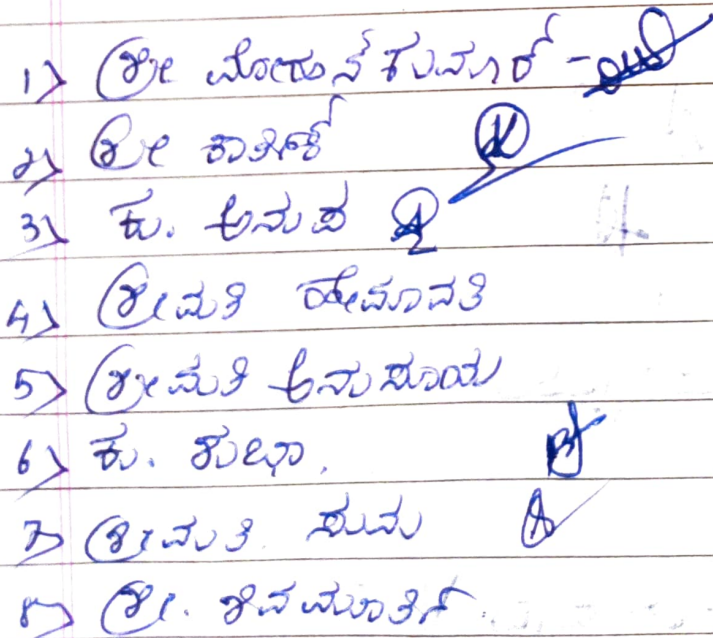 1) ಶ್ರೀ ಮೋಹನ್ ಕುಮಾರ್ -
2) ಶ್ರೀ ಕಾರ್ತಿಕ್
3) ಕು. ಅನುಪ
4) ಶ್ರೀಮತಿ ಹೇಮಾವತಿ
5) ಶ್ರೀಮತಿ ಅನುಸೂಯ
6) ಕು. ಶುಭಾ.
7) ಶ್ರೀಮತಿ ಸುಮ
8) ಶ್ರೀ. ಶಿವಮೂರ್ತಿ